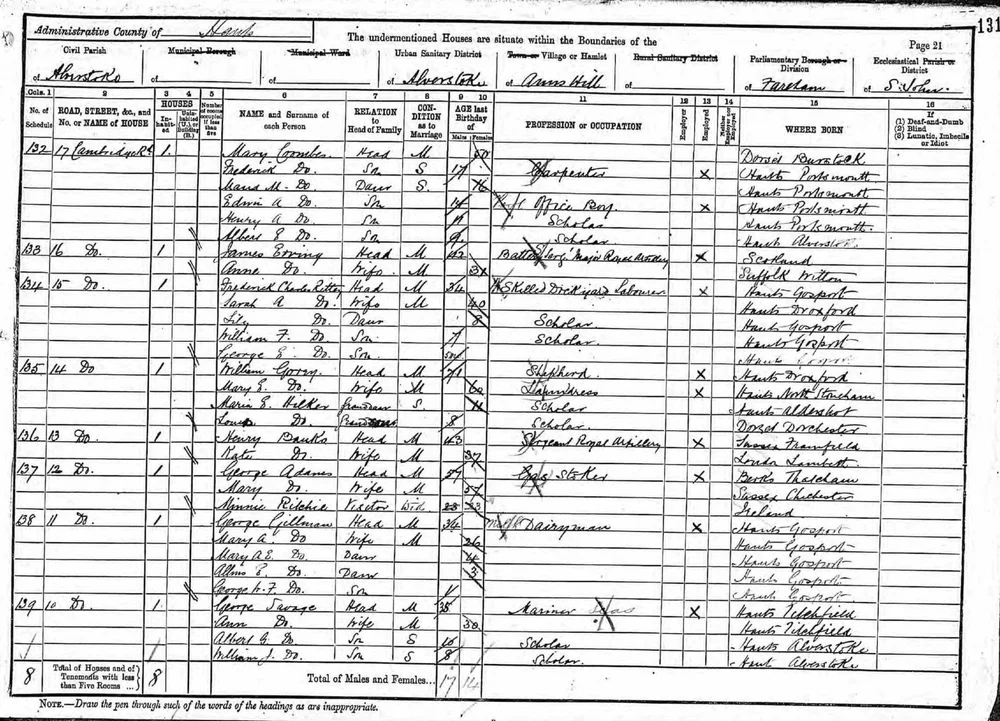 131
Administrative County of Hants
The undermentioned Houses are situate within the Boundaries of the
Page 21
Civil Parish of Alverstoke
Municipal Borough of
Municipal Ward of
Urban Sanitary District of Alverstoke
Town or Village or Hamlet of Anns Hill
Rural Sanitary District of
Parliamentary Borough or Division of Fareham
Ecclesiastical Parish or District of S. John
Cols. 1 2 3 4 5 6 7 8 9 10 11 12 13 14 15 16
No. of Schedule ROAD, STREET, &c., and No. or NAME of HOUSE HOUSES In-habit-ed Uninhabited (U.), or Building (B.) Number of rooms occupied if less than five NAME and Surname of each Person RELATION to Head of Family CON-DITION as to Marriage AGE last Birthday of Males Females PROFESSION or OCCUPATION Employer Employed Neither Employer nor Employed WHERE BORN If (1) Deaf-and-Dumb (2) Blind (3) Lunatic, Imbecile or Idiot
132 17 Cambridge Rd 1 Mary Coombes Head M 50 Dorset Burstock
Frederick Do. Son S 17 Carpenter X Hants Portsmouth
Maud M. Do. Daur S. 16 Hants Portsmouth
Edwin A Do. Son 14 Office Boy X Hants Portsmouth
Henry A Do. Son Scholar Hants Portsmouth.
Albert E Do. Son 9 Scholar Hants Alverstoke
133 16 Do. 1 James Ewing Head M 42 Battery Sergt Major Royal Artillery X Scotland
Anne Do. Wife M Suffolk Witton
134 15 Do. 1 Frederick Charles Head M 34 Skilled Dockyard Labourer X Hants Gosport
Sarah A Do. Wife M 40 Hants Droxford
Lily Do. Daur 8 Scholar Hants Gosport
William F. Do. Son 7 Scholar. Hants Gosport
George E. Do. Son. Hants Gosport
135 14 Do 1 William Head M 71 Shepherd X Hants Droxford
Mary E. Do. Wife M 60 Laundress X Hants North Stoneham
Maria E. Hilker Grandaur S. 11 Scholar Hants Aldershot
Do. 8 Scholar. Dorset Dorchester
136 13 Do. 1 Henry Banks Head M 43 Sergeant Royal Artillery X Sussex Framfield
Kate Do. Wife M 37 London Lambeth
137 12 Do. 1 George Adams Head M 57 Gas Stoker X Berks Thatcham
Mary Do. Wife M 57 Sussex Chichester
Minnie Ritchie Visitor Wid 23 23 Ireland
138 11 Do. 1 George Gillman Head M 34 Dairyman X Hants Gosport
Mary A. Do Wife M 26 Hants Gosport
Mary A E. Do. Daur 4 Hants Gosport
E. Do. Daur 3 Hants Gosport
George Do. Son Hants Gosport
139 10 Do. 1 George Savage Head M 38 Mariner X Hants Titchfield
Ann Do. Wife M 30 Hants Titchfield
Albert G. Do Son S 10 Scholar Hants Alverstoke
William J. Do. Son S 8 Scholar. Hants Alverstoke
8 Total of Houses and of Tenements with less than Five Rooms ... 8 Total of Males and Females... 17 14
NOTE.—Draw the pen through such of the words of the headings as are inappropriate.